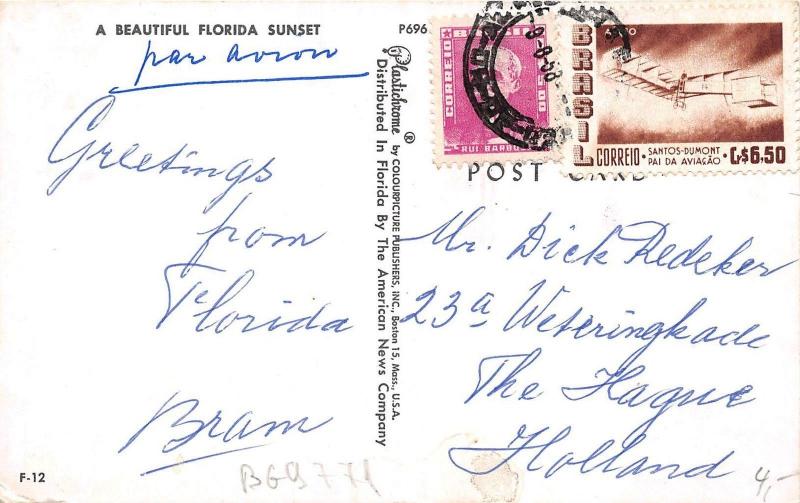 A BEAUTIFUL FLORIDA SUNSET
P696
par avion
Greetings
from
Florida
Bram
F-12
BG9771
Plastichrome ® by COLOURPICTURE PUBLISHERS, INC., Boston 15, Mass., U.S.A.
Distributed In Florida By The American News Company
POST CARD
CORREIO
RUI BARBOSA
BRASIL
CORREIO · SANTOS-DUMONT
PAI DA AVIAÇÃO · Cr$6.50
Mr. Dick Dedeker
23a Weteringkade
The Hague
Holland
4,-